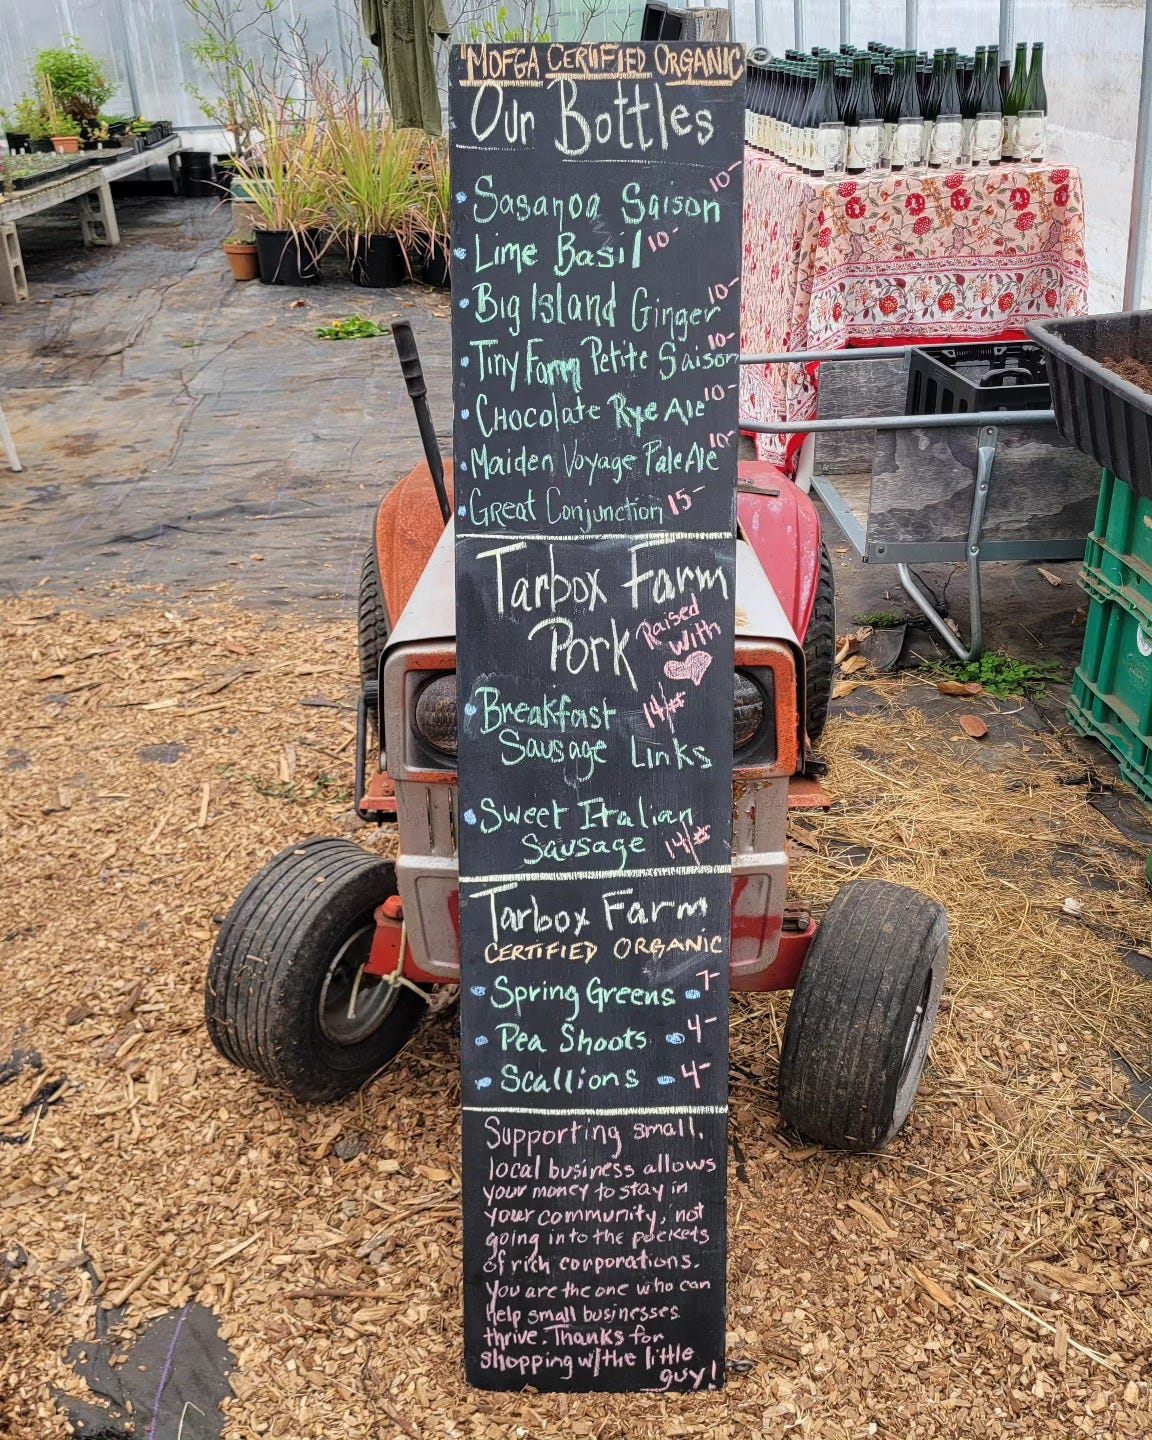 MOFGA CERTIFIED ORGANIC
Our Bottles
Sasanoa Saison 10-
Lime Basil 10-
Big Island Ginger 10-
Tiny Farm Petite Saison 10-
Chocolate Rye Ale 10-
Maiden Voyage Pale Ale 10-
Great Conjunction 15-
Tarbox Farm
Pork Raised with
Breakfast 14/#
Sausage Links
Sweet Italian
Sausage 14/#
Tarbox Farm
CERTIFIED ORGANIC
Spring Greens 7-
Pea Shoots 4-
Scallions 4-
Supporting small,
local business allows
your money to stay in
your community, not
going into the pockets
of rich corporations.
You are the one who can
help small businesses
thrive. Thanks for
shopping w/the little
guy!